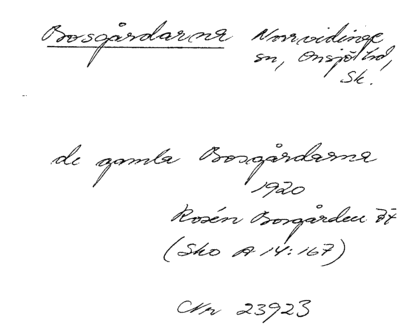 Bosgårdarna Norrvidinge
sn, Onsjö hd,
Sk.
de gamla Bosgårdarna
1920
Rosén Borgården 77
(Sko A 14:167)
Nr 23923